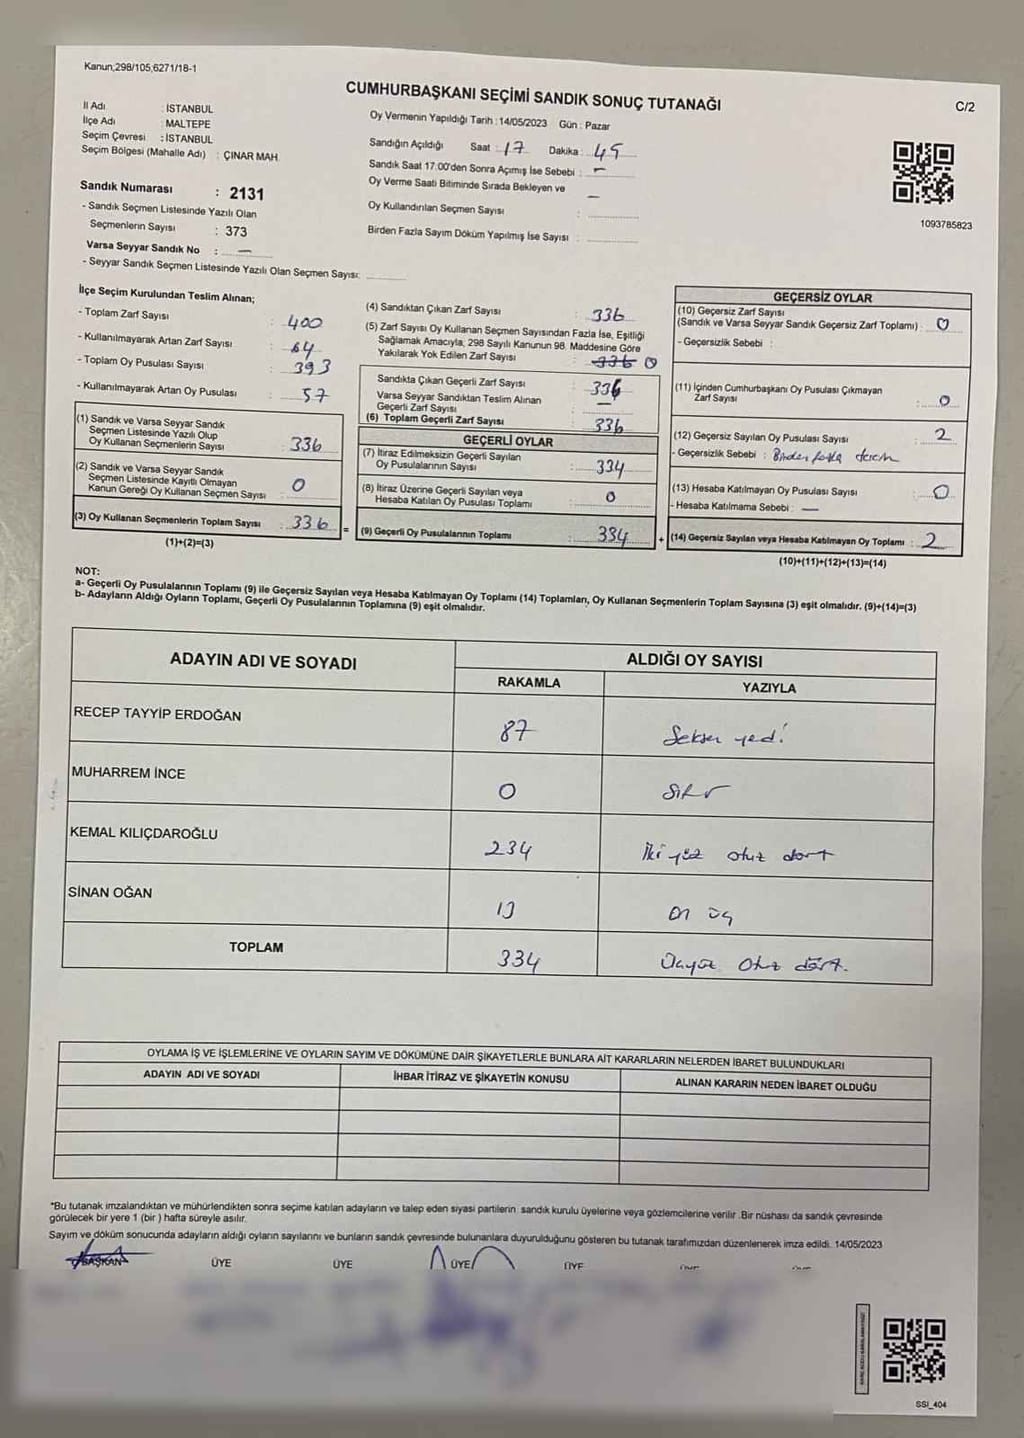 Kanun,298/105,6271/18-1
CUMHURBAŞKANI SEÇİMİ SANDIK SONUÇ TUTANAĞI
C/2
İl Adı : İSTANBUL
İlçe Adı : MALTEPE
Seçim Çevresi : İSTANBUL
Seçim Bölgesi (Mahalle Adı) : ÇINAR MAH.
Oy Vermenin Yapıldığı Tarih : 14/05/2023 Gün : Pazar
Sandığın Açıldığı Saat : 17 Dakika : 45
Sandık Saat 17.00'den Sonra Açımış İse Sebebi : —
Oy Verme Saati Bitiminde Sırada Bekleyen ve —
Oy Kullandırılan Seçmen Sayısı :
Birden Fazla Sayım Döküm Yapılmış İse Sayısı :
1093785823
Sandık Numarası : 2131
- Sandık Seçmen Listesinde Yazılı Olan
Seçmenlerin Sayısı : 373
Varsa Seyyar Sandık No : —
- Seyyar Sandık Seçmen Listesinde Yazılı Olan Seçmen Sayısı:
İlçe Seçim Kurulundan Teslim Alınan;
- Toplam Zarf Sayısı : 400
- Kullanılmayarak Artan Zarf Sayısı : 64
- Toplam Oy Pusulası Sayısı : 393
- Kullanılmayarak Artan Oy Pusulası : 57
(1) Sandık ve Varsa Seyyar Sandık
Seçmen Listesinde Yazılı Olup
Oy Kullanan Seçmenlerin Sayısı : 336
(2) Sandık ve Varsa Seyyar Sandık
Seçmen Listesinde Kayıtlı Olmayan
Kanun Gereği Oy Kullanan Seçmen Sayısı : 0
(3) Oy Kullanan Seçmenlerin Toplam Sayısı : 336 =
(1)+(2)=(3)
(4) Sandıktan Çıkan Zarf Sayısı : 336
(5) Zarf Sayısı Oy Kullanan Seçmen Sayısından Fazla İse, Eşitliği
Sağlamak Amacıyla, 298 Sayılı Kanunun 98. Maddesine Göre
Yakılarak Yok Edilen Zarf Sayısı : 336 0
Sandıkta Çıkan Geçerli Zarf Sayısı : 336
Varsa Seyyar Sandıktan Teslim Alınan
Geçerli Zarf Sayısı : —
(6) Toplam Geçerli Zarf Sayısı : 336
GEÇERLİ OYLAR
(7) İtiraz Edilmeksizin Geçerli Sayılan
Oy Pusulalarının Sayısı : 334
(8) İtiraz Üzerine Geçerli Sayılan veya
Hesaba Katılan Oy Pusulası Toplamı : 0
(9) Geçerli Oy Pusulalarının Toplamı : 334 +
GEÇERSİZ OYLAR
(10) Geçersiz Zarf Sayısı
(Sandık ve Varsa Seyyar Sandık Geçersiz Zarf Toplamı) : 0
- Geçersizlik Sebebi :
(11) İçinden Cumhurbaşkanı Oy Pusulası Çıkmayan
Zarf Sayısı : 0
(12) Geçersiz Sayılan Oy Pusulası Sayısı : 2
- Geçersizlik Sebebi : Birden fazla
(13) Hesaba Katılmayan Oy Pusulası Sayısı : 0
- Hesaba Katılmama Sebebi : —
(14) Geçersiz Sayılan veya Hesaba Katılmayan Oy Toplamı : 2
(10)+(11)+(12)+(13)=(14)
NOT:
a- Geçerli Oy Pusulalarının Toplamı (9) ile Geçersiz Sayılan veya Hesaba Katılmayan Oy Toplamı (14) Toplamları, Oy Kullanan Seçmenlerin Toplam Sayısına (3) eşit olmalıdır. (9)+(14)=(3)
b- Adayların Aldığı Oyların Toplamı, Geçerli Oy Pusulalarının Toplamına (9) eşit olmalıdır.
ADAYIN ADI VE SOYADI
ALDIĞI OY SAYISI
RAKAMLA
YAZIYLA
RECEP TAYYİP ERDOĞAN 87 Seksen yedi
MUHARREM İNCE 0 Sıfır
KEMAL KILIÇDAROĞLU 234 İki yüz otuz dört
SİNAN OĞAN 13 on üç
TOPLAM 334 Üçyüz Otuz dört.
OYLAMA İŞ VE İŞLEMLERİNE VE OYLARIN SAYIM VE DÖKÜMÜNE DAİR ŞİKAYETLERLE BUNLARA AİT KARARLARIN NELERDEN İBARET BULUNDUKLARI
ADAYIN ADI VE SOYADI
İHBAR İTİRAZ VE ŞİKAYETİN KONUSU
ALINAN KARARIN NEDEN İBARET OLDUĞU
*Bu tutanak imzalandıktan ve mühürlendikten sonra seçime katılan adayların ve talep eden siyasi partilerin sandık kurulu üyelerine veya gözlemcilerine verilir .Bir nüshası da sandık çevresinde
görülecek bir yere 1 (bir ) hafta süreyle asılır.
Sayım ve döküm sonucunda adayların aldığı oyların sayılarını ve bunların sandık çevresinde bulunanlara duyurulduğunu gösteren bu tutanak tarafımızdan düzenlenerek imza edildi. 14/05/2023
BAŞKAN ÜYE ÜYE ÜYE ÜYE
SSI_404